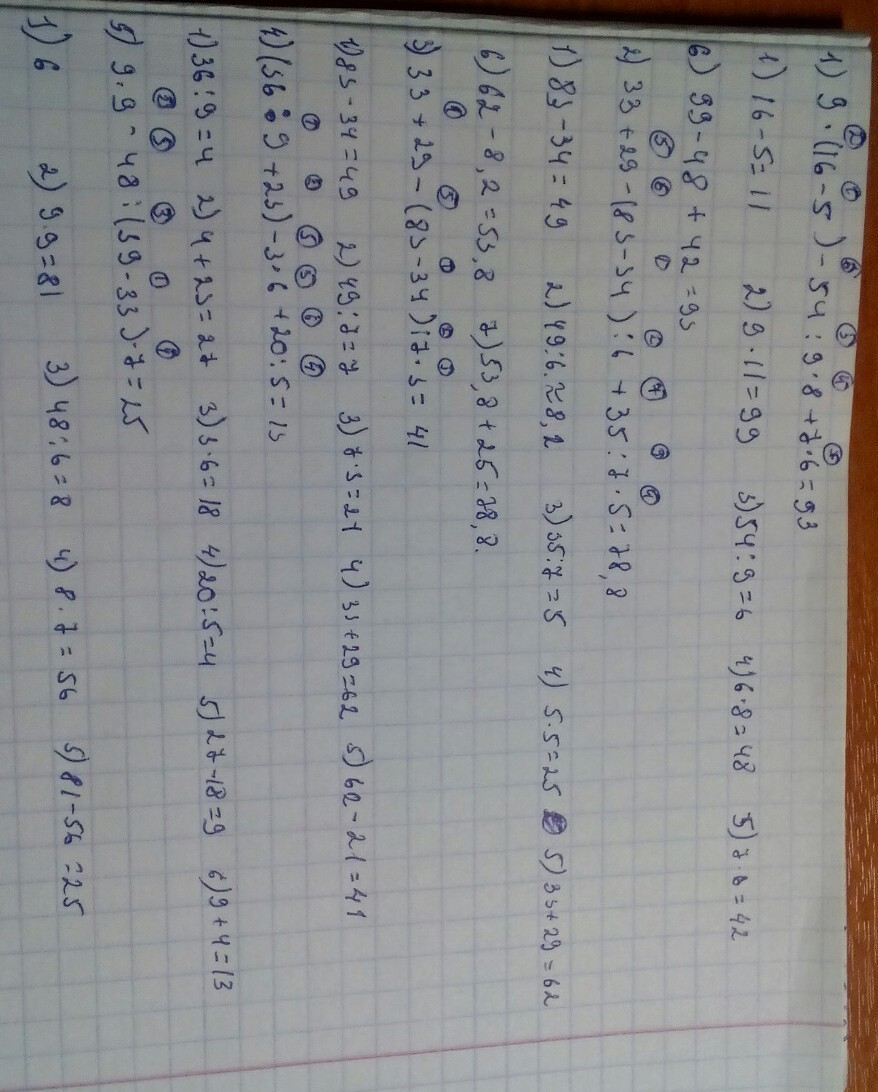 ② ① ⑥ ③ ④ ⑤
1) 9·(16-5)-54:9·8+7·6=93
1) 16-5=11 2) 9·11=99 3) 54:9=6 4) 6·8=48 5) 7·6=42
6) 99-48+42=93
⑤ ⑥ ① ② ⑦ ③ ④
2) 33+29-(83-34):6+35:7·5=78,8
1) 83-34=49 2) 49:6≈8,2 3) 35:7=5 4) 5·5=25 5) 33+29=62
6) 62-8,2=53,8 7) 53,8+25=78,8.
④ ⑤ ① ② ③
3) 33+29-(83-34):7·3=41
1) 83-34=49 2) 49:7=7 3) 7·3=21 4) 33+29=62 5) 62-21=41
① ② ⑤ ③ ⑥ ④
4) (36:9+23)-3·6+20:5=13
1) 36:9=4 2) 4+23=27 3) 3·6=18 4) 20:5=4 5) 27-18=9 6) 9+4=13
② ⑤ ③ ① ④
5) 9·9-48:(39-33)·7=25
1) 6 2) 9·9=81 3) 48:6=8 4) 8·7=56 5) 81-56=25